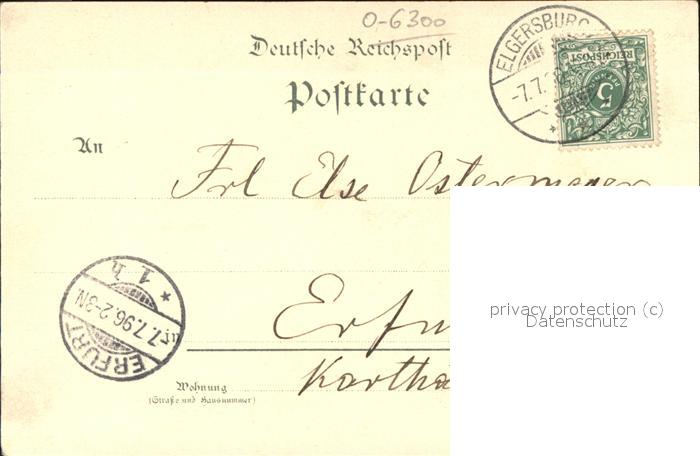 O-6300
Deutsche Reichspost
Postkarte
ELGERSBURG
-7.7.
REICHSPOST
5
An
Frl Else Ostermeyer
1 h
7.7.96.2-3N.
ERFURT
Erfu
privacy protection (c)
Datenschutz
Kartha
Wohnung
(Straße und Hausnummer)